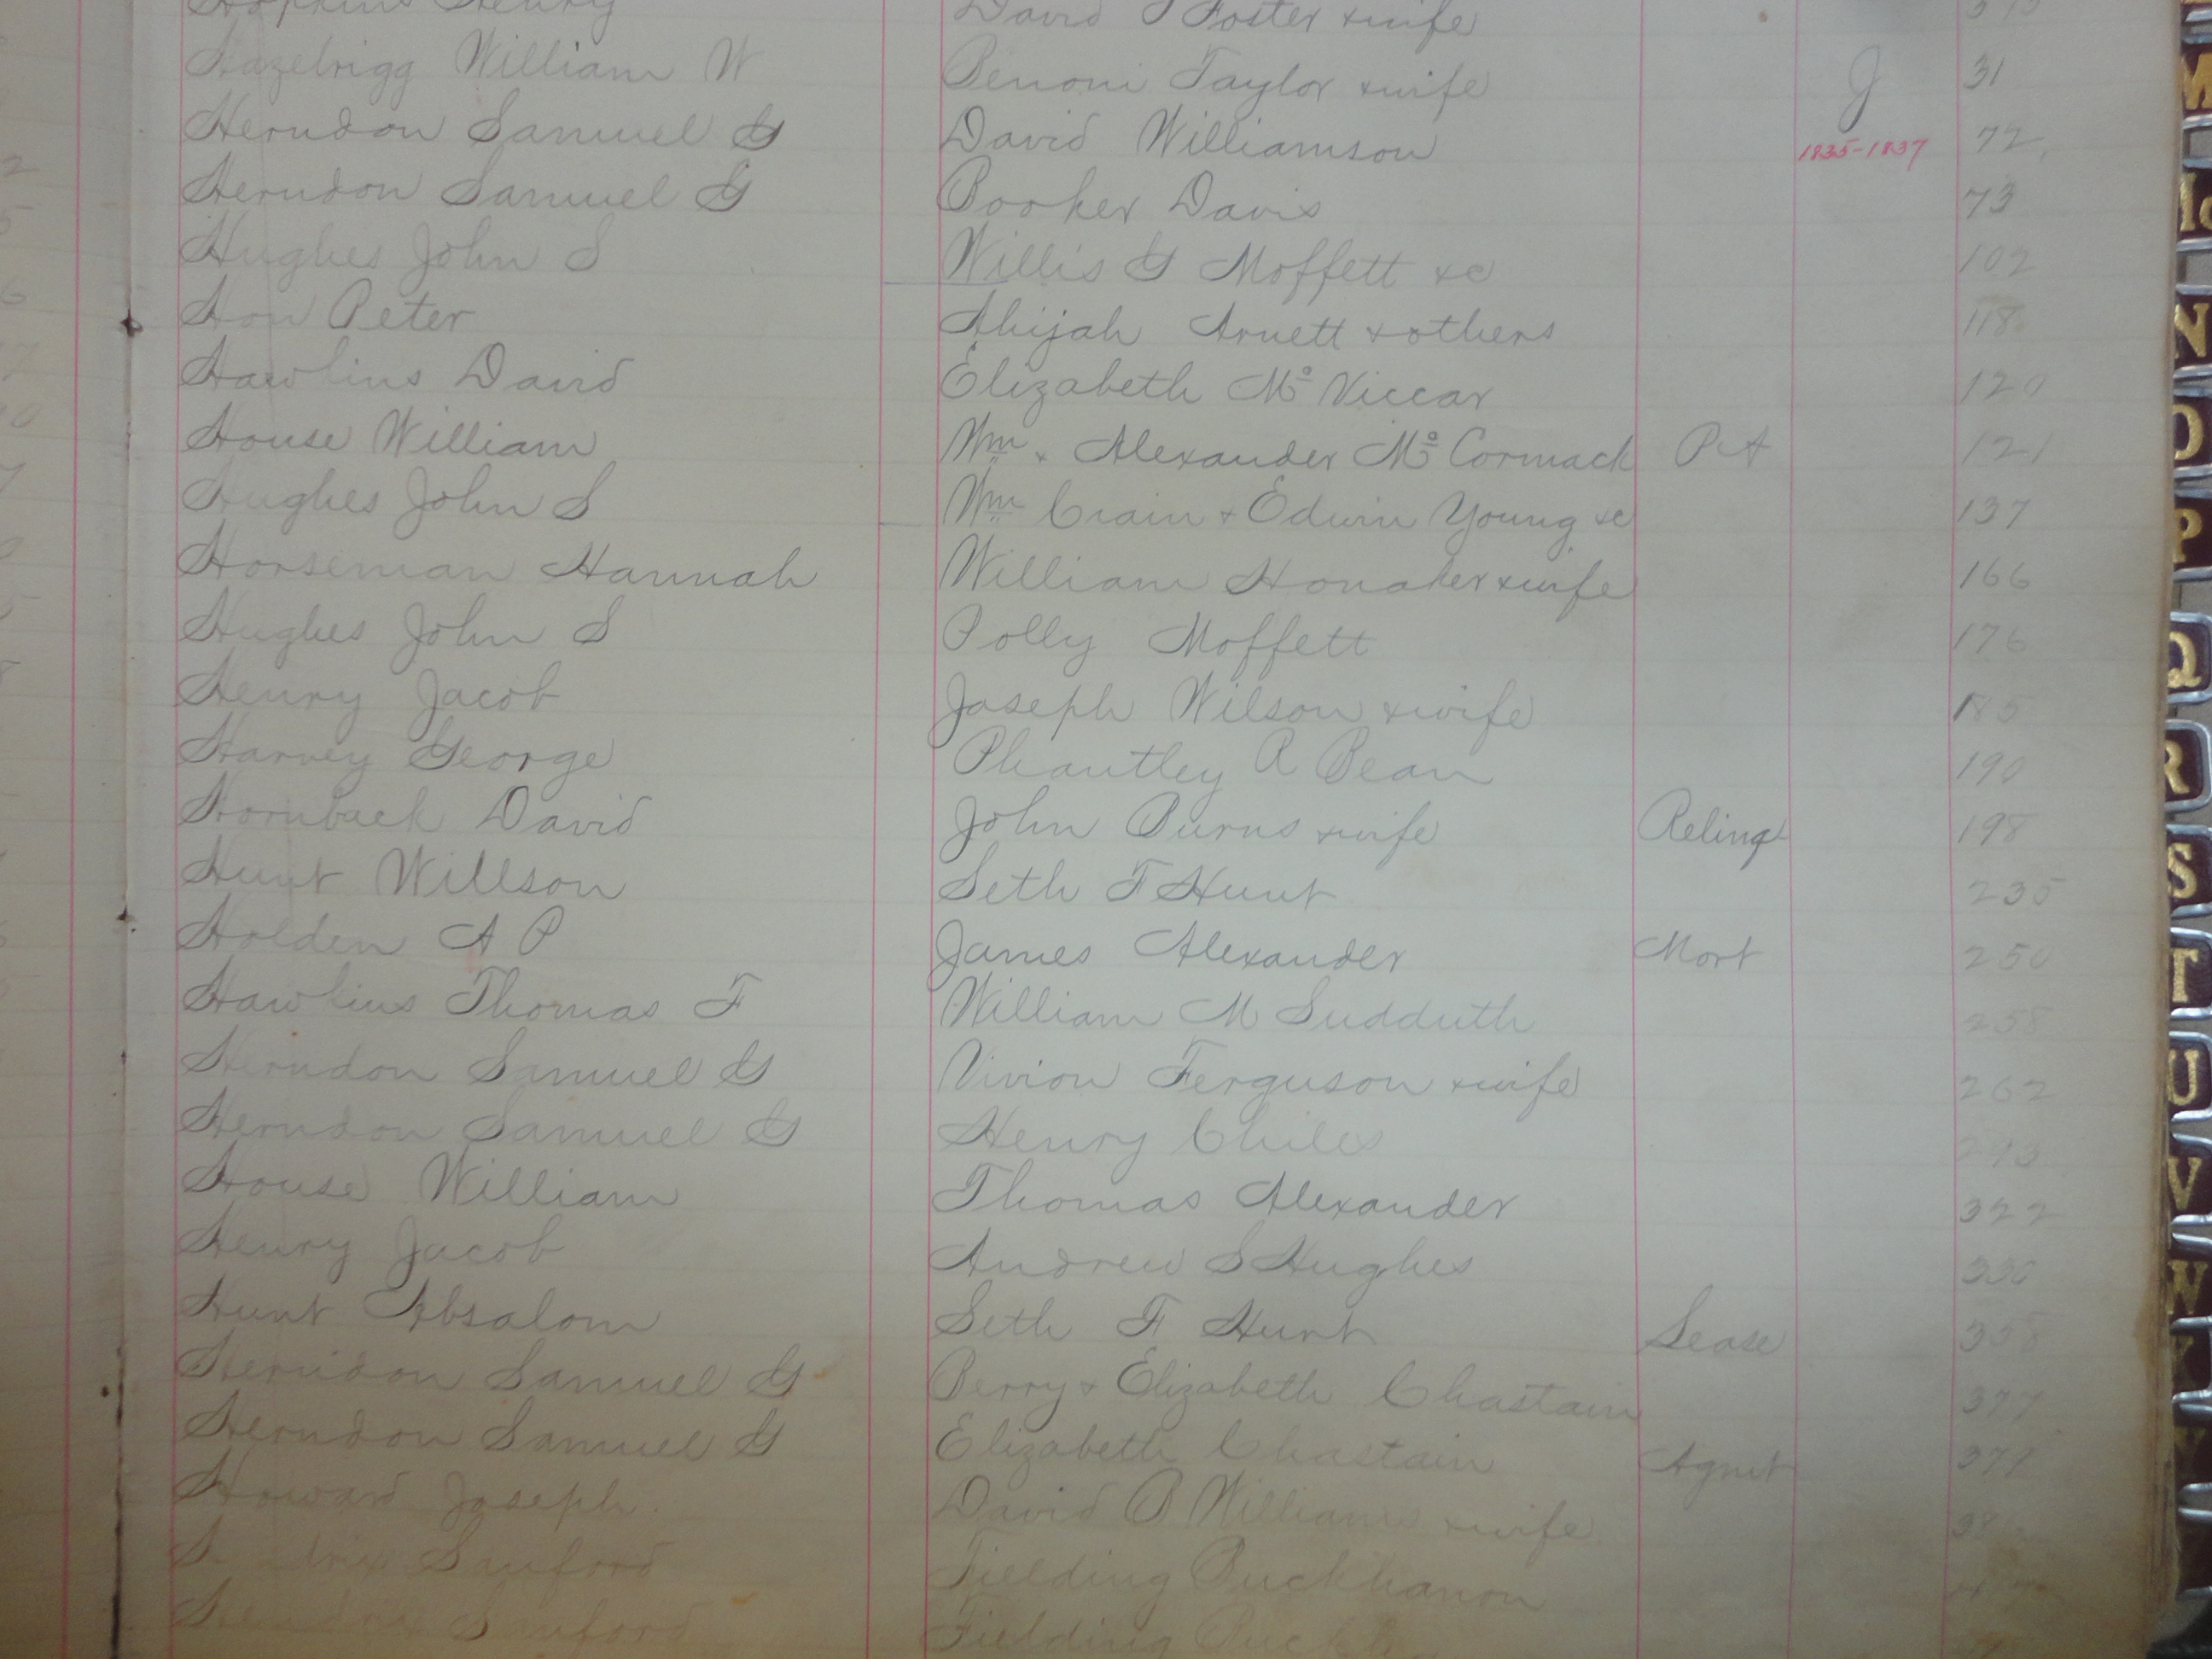 Hopkins Henry David J Foster & wife
Hazelrigg William W Benoni Taylor & wife J 31
Herndon Samuel G David Williamson 1835-1837 72
Herndon Samuel G Booker Davis 73
Hughes John S Willis G Moffett &c 102
Hon Peter Abijah Arnett & others 118
Hawkins David Elizabeth Mc Viccar 120
House William Wm & Alexander Mc Cormack P A 121
Hughes John S Wm Crain & Edwin Young &c 137
Horseman Hannah William Honaker & wife 166
Hughes John S Polly Moffett 176
Henry Jacob Joseph Wilson & wife 185
Harvey George Phantley R Bean 190
Hornback David John Burns & wife Relinq 198
Hunt Willson Seth F Hunt 235
Holden A P James Alexander Mort 250
Hawkins Thomas F William M Sudduth 258
Herndon Samuel G Vivion Ferguson & wife 262
Herndon Samuel G Henry Chiles
House William Thomas Alexander 322
Henry Jacob Andrew S Hughes
Hunt Absalom Seth F Hunt Lease 358
Herndon Samuel G Berry & Elizabeth Chastain 377
Herndon Samuel G Elizabeth Chastain Agmt
Howard Joseph David P Williams & wife
Sanford Fielding Buckhanon
Hendrix Sanford Fielding
M
Mc
N
O
P
Q
R
S
T
U
V
W
Y